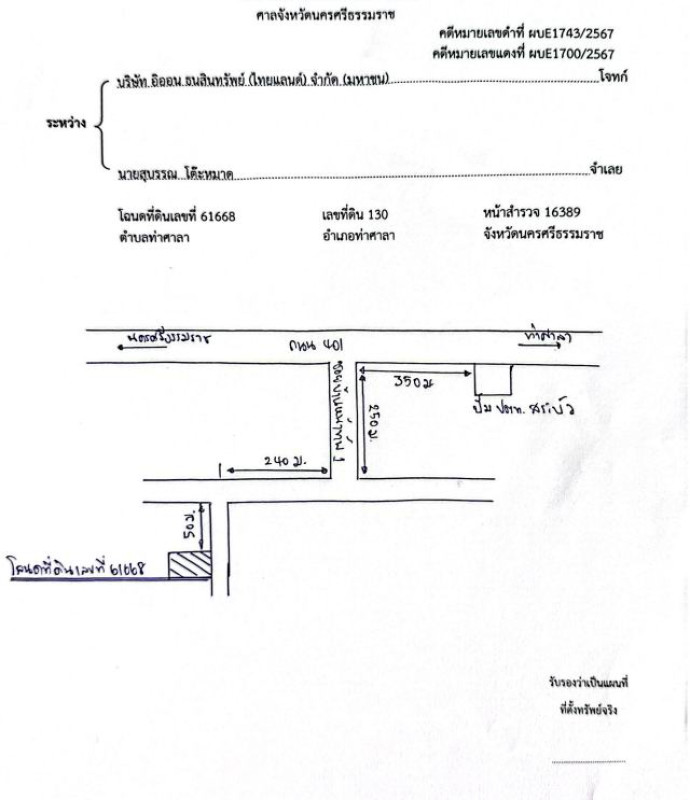 ศาลจังหวัดนครศรีธรรมราช
คดีหมายเลขดำที่ ผบE1743/2567
คดีหมายเลขแดงที่ ผบE1700/2567
บริษัท อิออน ธนสินทรัพย์ (ไทยแลนด์) จำกัด (มหาชน) โจทก์
ระหว่าง
นายสุบรรณ โต๊ะหมาด จำเลย
โฉนดที่ดินเลขที่ 61668 เลขที่ดิน 130 หน้าสำรวจ 16389
ตำบลท่าศาลา อำเภอท่าศาลา จังหวัดนครศรีธรรมราช
นครศรีธรรมราช ถนน 401 ท่าศาลา
350 ม
ปั๊ม ปตท. สระบัว
250 ม.
240 ม.
50 ม.
โฉนดที่ดินเลขที่ 61668
รับรองว่าเป็นแผนที่
ที่ตั้งทรัพย์จริง